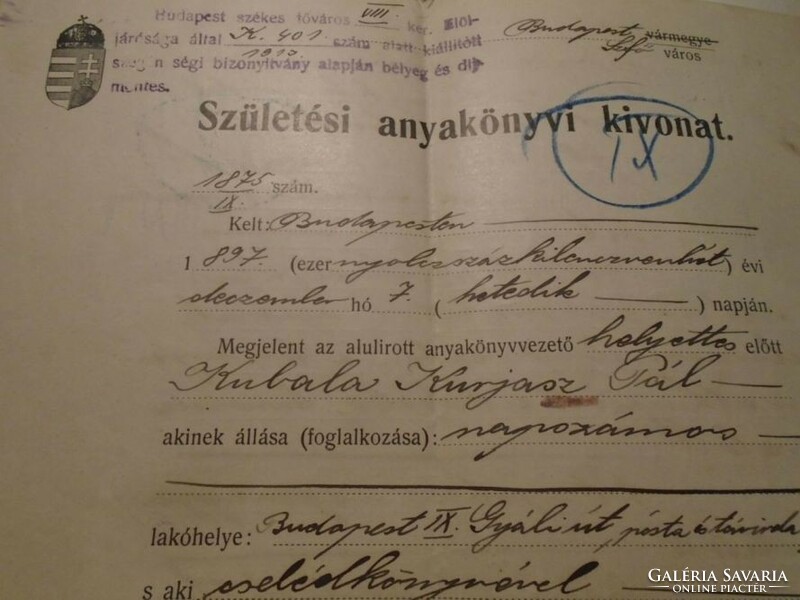 Budapest székes főváros VIII. ker. Elöl-
járósága által K. 401 szám alatt kiállított
1910
szeg n ségi bizonyítvány alapján bélyeg és díj-
mentes.
Budapest vármegye
város
Születési anyakönyvi kivonat.
IX
1875 szám.
IX.
Kelt: Budapesten
1 897. (ezer nyolcszázkilencvenhét) évi
deczember hó 7. (hetedik) napján.
Megjelent az alulirott anyakönyvvezető helyettes előtt
Kubala Kurjasz Pál
akinek állása (foglalkozása): napszámos
lakóhelye: Budapest IX. Gyáli út, posta és távirda
s aki cselédkönyvével
GALÉRIA SAVARIA
ONLINE PIACTÉR